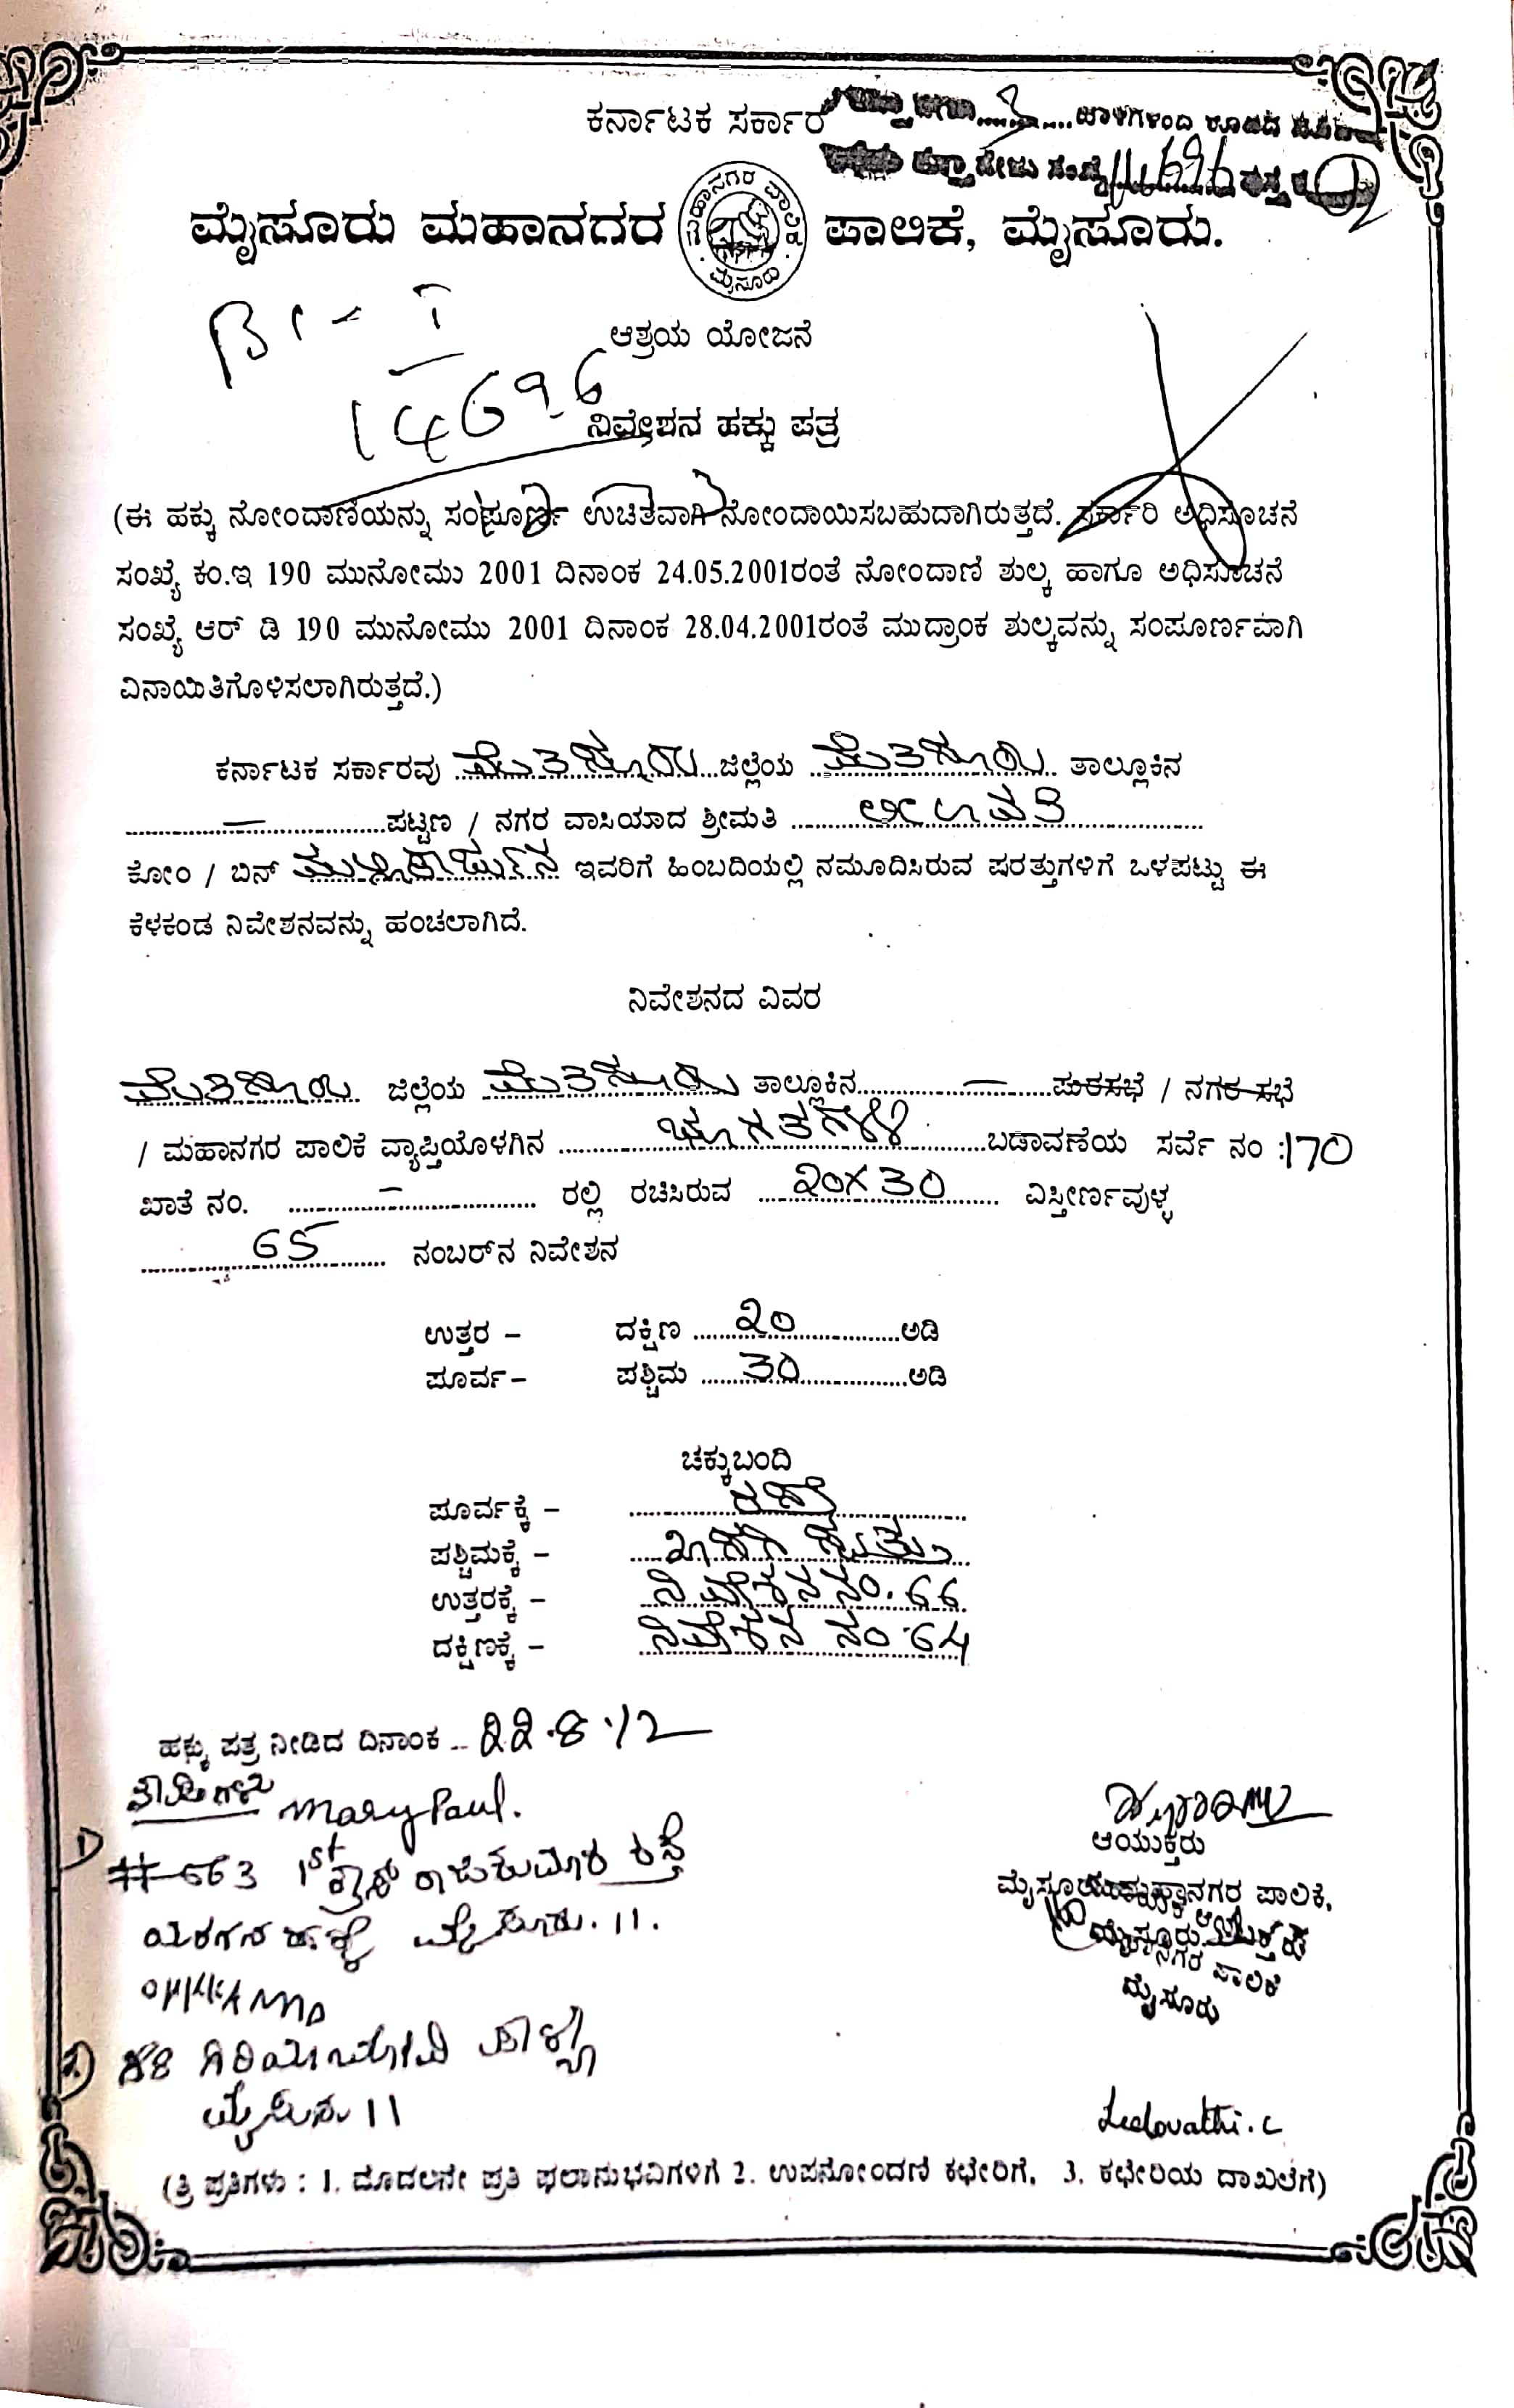 ಕರ್ನಾಟಕ ಸರ್ಕಾರ
ಹಾಳೆಗಳಿಂದ ಕೂಡಿದ
ಪುಟ ಸಂಖ್ಯೆ 14696
ಮೈಸೂರು ಮಹಾನಗರ ಪಾಲಿಕೆ, ಮೈಸೂರು.
ಮಹಾನಗರ ಪಾಲಿಕೆ
ಮೈಸೂರು
B1 - I
ಆಶ್ರಯ ಯೋಜನೆ
14696
ನಿವೇಶನ ಹಕ್ಕು ಪತ್ರ
(ಈ ಹಕ್ಕು ನೋಂದಾಣಿಯನ್ನು ಸಂಪೂರ್ಣ ಉಚಿತವಾಗಿ ನೋಂದಾಯಿಸಬಹುದಾಗಿರುತ್ತದೆ. ಸರ್ಕಾರಿ ಅಧಿಸೂಚನೆ
ಸಂಖ್ಯೆ ಕಂ.ಇ 190 ಮುನೋಮು 2001 ದಿನಾಂಕ 24.05.2001ರಂತೆ ನೋಂದಾಣಿ ಶುಲ್ಕ ಹಾಗೂ ಅಧಿಸೂಚನೆ
ಸಂಖ್ಯೆ ಆರ್ ಡಿ 190 ಮುನೋಮು 2001 ದಿನಾಂಕ 28.04.2001ರಂತೆ ಮುದ್ರಾಂಕ ಶುಲ್ಕವನ್ನು ಸಂಪೂರ್ಣವಾಗಿ
ವಿನಾಯಿತಿಗೊಳಿಸಲಾಗಿರುತ್ತದೆ.)
ಕರ್ನಾಟಕ ಸರ್ಕಾರವು ಮೈಸೂರು ಜಿಲ್ಲೆಯ ಮೈಸೂರು ತಾಲ್ಲೂಕಿನ
– ಪಟ್ಟಣ / ನಗರ ವಾಸಿಯಾದ ಶ್ರೀಮತಿ ಲೀಲಾವತಿ
ಕೋಂ / ಬಿನ್ ಮಲ್ಲಿಕಾರ್ಜುನ ಇವರಿಗೆ ಹಿಂಬದಿಯಲ್ಲಿ ನಮೂದಿಸಿರುವ ಷರತ್ತುಗಳಿಗೆ ಒಳಪಟ್ಟು ಈ
ಕೆಳಕಂಡ ನಿವೇಶನವನ್ನು ಹಂಚಲಾಗಿದೆ.
ನಿವೇಶನದ ವಿವರ
ಮೈಸೂರು ಜಿಲ್ಲೆಯ ಮೈಸೂರು ತಾಲ್ಲೂಕಿನ – ಪುರಸಭೆ / ನಗರ ಸಭೆ
/ ಮಹಾನಗರ ಪಾಲಿಕೆ ವ್ಯಾಪ್ತಿಯೊಳಗಿನ ಭೂಗತಗಳ್ಳಿ ಬಡಾವಣೆಯ ಸರ್ವೆ ನಂ :170
ಖಾತೆ ನಂ. – ರಲ್ಲಿ ರಚಿಸಿರುವ 20X30 ವಿಸ್ತೀರ್ಣವುಳ್ಳ
65 ನಂಬರ್‌ನ ನಿವೇಶನ
ಉತ್ತರ – ದಕ್ಷಿಣ 20 ಅಡಿ
ಪೂರ್ವ– ಪಶ್ಚಿಮ 30 ಅಡಿ
ಚಕ್ಕುಬಂದಿ
ಪೂರ್ವಕ್ಕೆ – ರಸ್ತೆ
ಪಶ್ಚಿಮಕ್ಕೆ – ಖಾಸಗಿ ಸ್ವತ್ತು
ಉತ್ತರಕ್ಕೆ – ನಿವೇಶನ ನಂ. 66
ದಕ್ಷಿಣಕ್ಕೆ – ನಿವೇಶನ ನಂ. 64
ಹಕ್ಕು ಪತ್ರ ನೀಡಿದ ದಿನಾಂಕ .. 22.8.12
ಸಾಕ್ಷಿಗಳು Mary Paul.
1) # 663 1st ಕ್ರಾಸ್ ರಾಜಕುಮಾರ ರಸ್ತೆ
ಯರಗನಹಳ್ಳಿ ಮೈಸೂರು. 11.
2) ಗಿರಿಯಾಬೋವಿ ಪಾಳ್ಯ
ಮೈಸೂರು 11
ಆಯುಕ್ತರು
ಮೈಸೂರು ಮಹಾನಗರ ಪಾಲಿಕೆ,
ಮೈಸೂರು.
ಮಹಾನಗರ ಪಾಲಿಕೆ
ಮೈಸೂರು
Leelavathi.c
(ತ್ರಿ ಪ್ರತಿಗಳು : 1. ಮೊದಲನೇ ಪ್ರತಿ ಫಲಾನುಭವಿಗಳಿಗೆ 2. ಉಪನೋಂದಣಿ ಕಛೇರಿಗೆ, 3. ಕಛೇರಿಯ ದಾಖಲೆಗೆ)